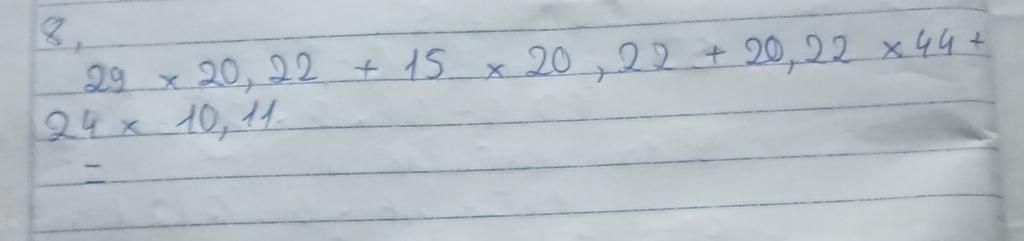 8,
29 × 20,22 + 15 × 20,22 + 20,22 × 44 +
24 × 10,11
=